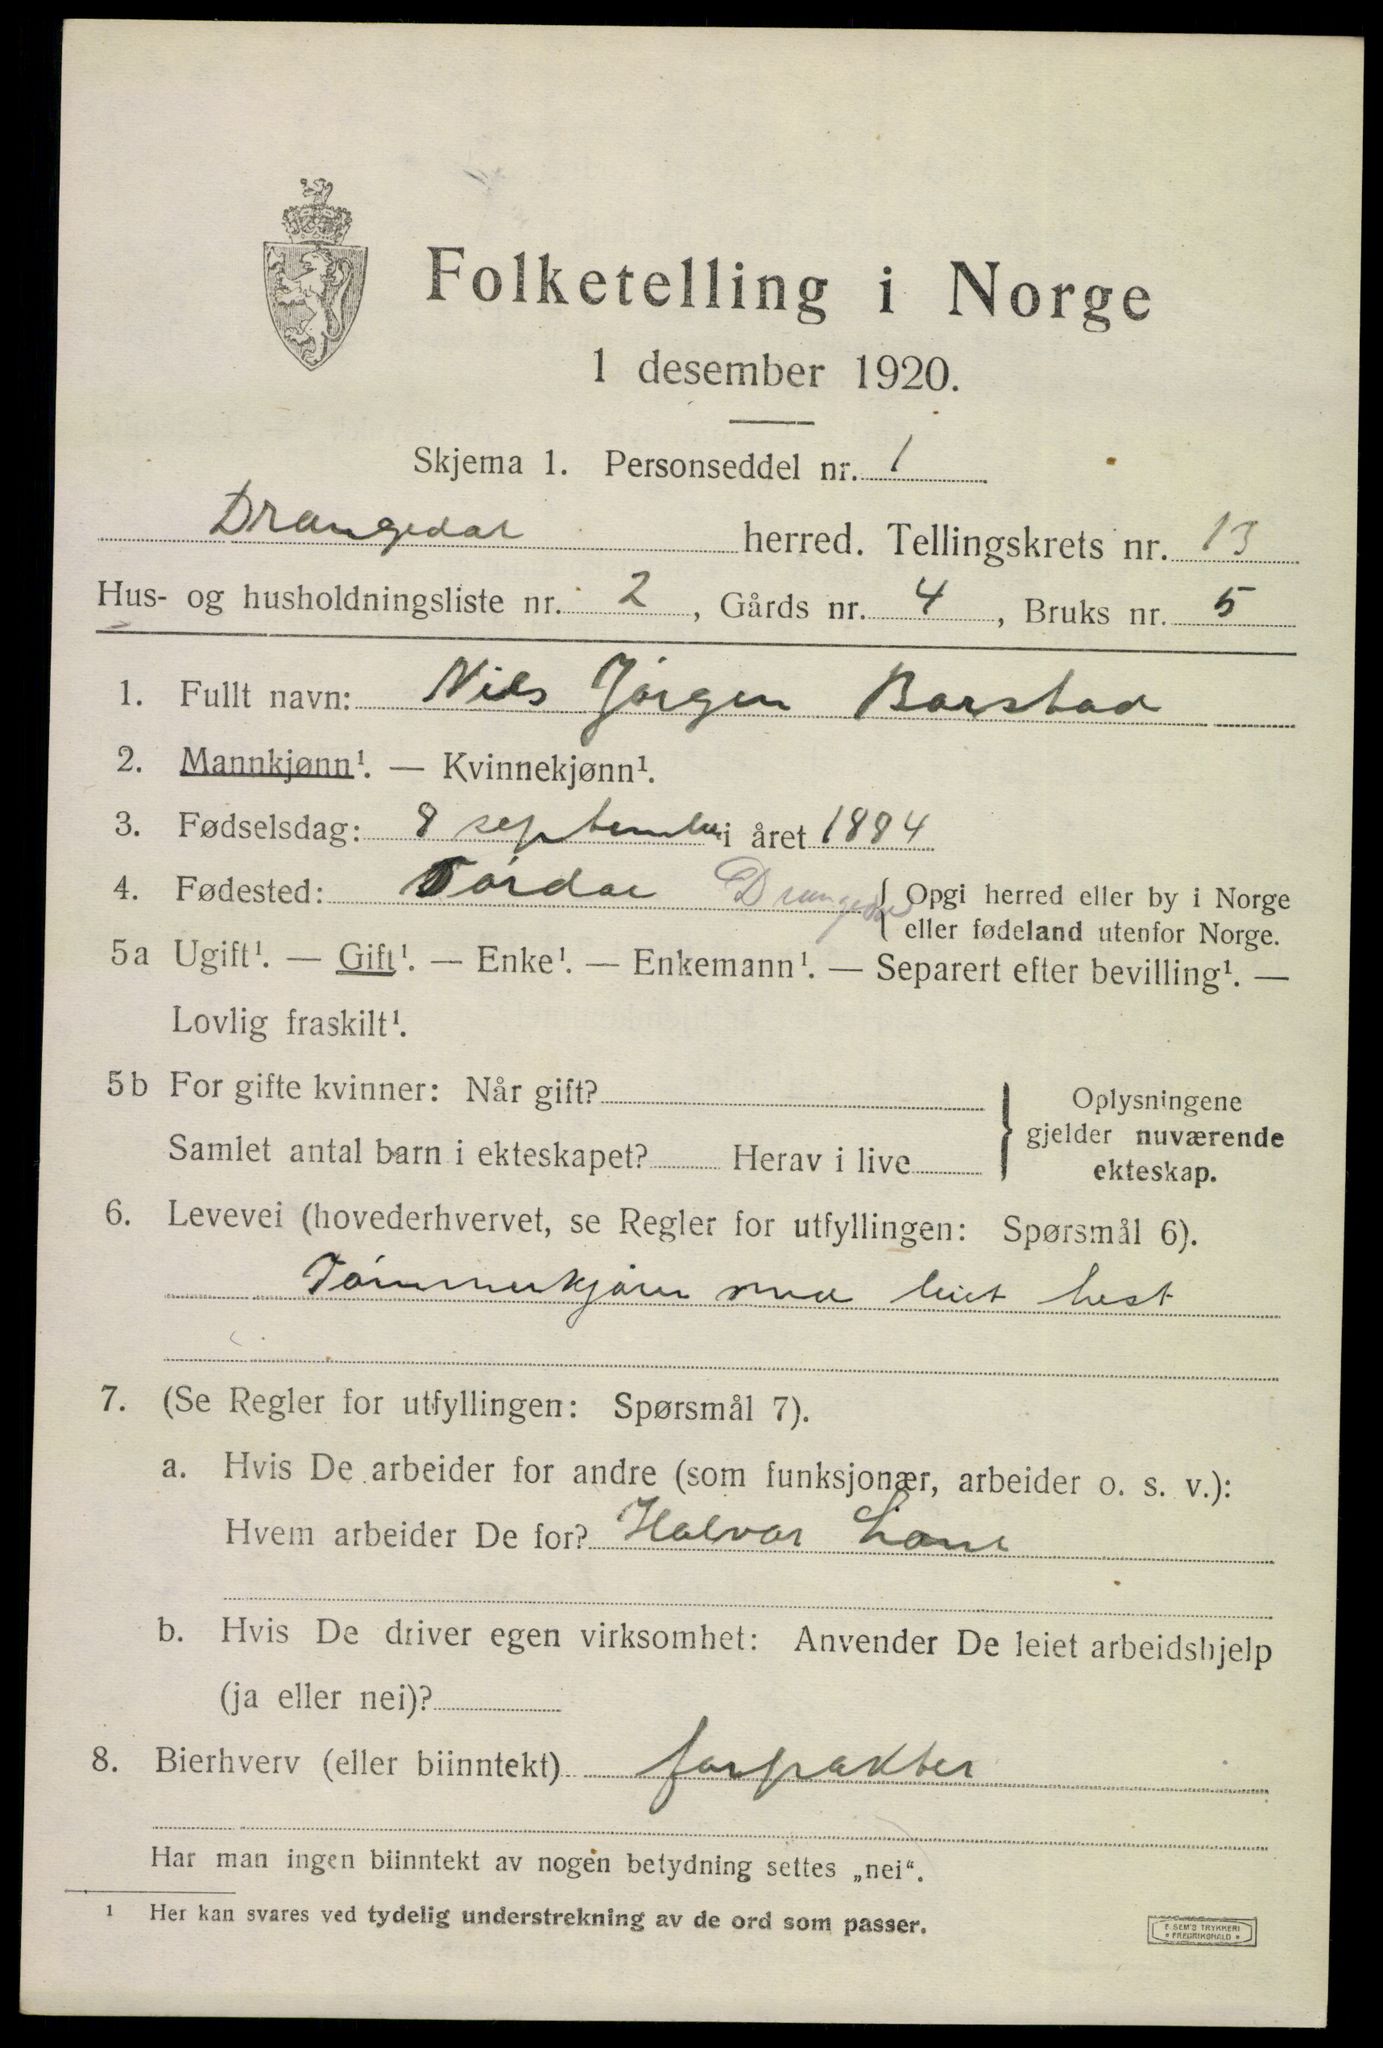 Folketelling i Norge
1 desember 1920.
Skjema 1. Personseddel nr. 1
Drangedal herred. Tellingskrets nr. 13
Hus- og husholdningsliste nr. 2, Gårds nr. 4, Bruks nr. 5
1. Fullt navn: Nils Jörgen Barstad
2. Mannkjønn¹. — Kvinnekjønn¹.
3. Fødselsdag: 8 september i året 1884
4. Fødested: Tördal Drangedal { Opgi herred eller by i Norge
eller fødeland utenfor Norge.
5a Ugift¹. — Gift¹. — Enke¹. — Enkemann¹. — Separert efter bevilling¹. —
Lovlig fraskilt¹.
5b For gifte kvinner: Når gift? } Oplysningene
gjelder nuværende
ekteskap.
Samlet antal barn i ekteskapet? Herav i live
6. Levevei (hovederhvervet, se Regler for utfyllingen: Spørsmål 6).
Tömmerkjörer med leiet hest
7. (Se Regler for utfyllingen: Spørsmål 7).
a. Hvis De arbeider for andre (som funksjonær, arbeider o. s. v.):
Hvem arbeider De for? Halvor
b. Hvis De driver egen virksomhet: Anvender De leiet arbeidshjelp
(ja eller nei)?
8. Bierhverv (eller biinntekt) forpakter
Har man ingen biinntekt av nogen betydning settes „nei“.
¹ Her kan svares ved tydelig understrekning av de ord som passer.
F. SEM'S TRYKKERI
* FREDRIKSHALD *